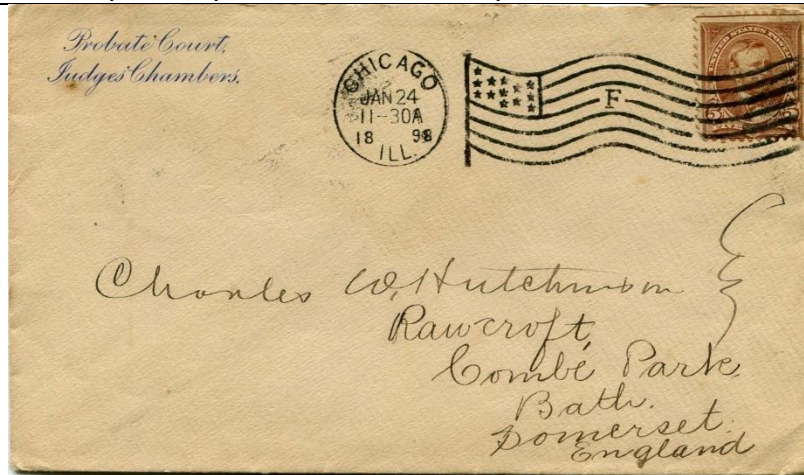 Probate Court,
Judges' Chambers.
CHICAGO
JAN 24
11-30A
18 98
ILL.
F
UNITED STATES POSTAGE
5
Charles W. Hutchinson Esq
Rawcroft,
Combe Park,
Bath.
Somerset.
England